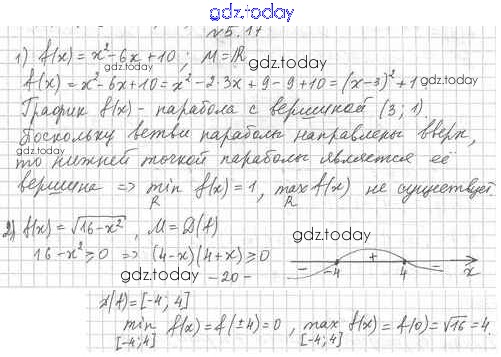 gdz.today
№5.17
1) f(x) = x² - 6x + 10 ; M = ℝ
gdz.today
f(x) = x² - 6x + 10 = x² - 2·3x + 9 - 9 + 10 = (x - 3)² + 1
gdz.today
График f(x) - парабола с вершиной (3; 1)
Поскольку ветви параболы направлены вверх,
gdz.today
то нижней точкой параболы является её
вершина => min f(x) = 1, max f(x) не существует.
ℝ ℝ
2) f(x) = √16 - x² , M = D(f)
gdz.today
16 - x² ≥ 0 => (4 - x)(4 + x) ≥ 0
- -4 + 4 - x
gdz.today - 20 - gdz.today
D(f) = [-4; 4]
min f(x) = f(±4) = 0 , max f(x) = f(0) = √16 = 4.
[-4; 4] [-4; 4]
gdz.today